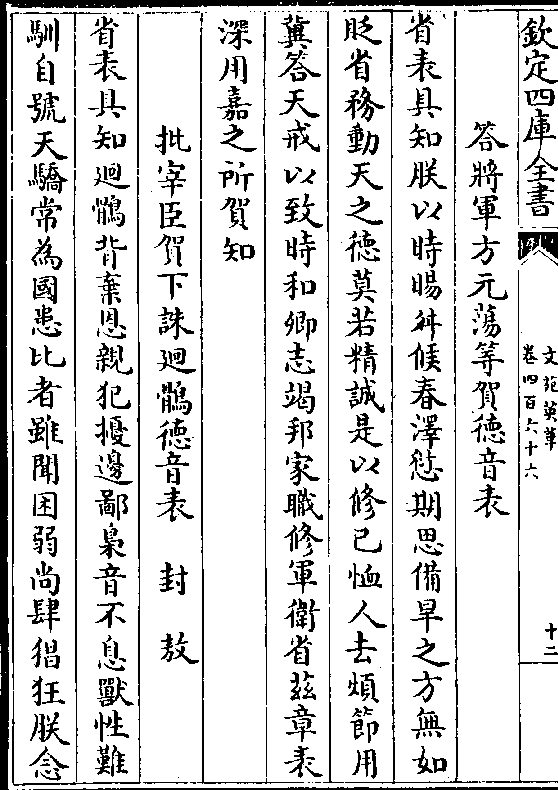 欽定四庫全書
文苑英華
卷四百六十六
十二
答將軍方元蕩等賀德音表
省表具知朕以時暘舛候春澤愆期思備旱之方無如
貶省務動天之德莫若精誠是以修已恤人去煩節用
冀答天戒以致時和卿志竭邦家職修軍衛省兹章表
深用嘉之所賀知
批宰臣賀下誅廻鶻德音表 封敖
省表具知廻鶻背棄恩親犯擾邊鄙梟音不息獸性難
馴自號天驕常為國患比者雖聞困弱尚肆猖狂朕念